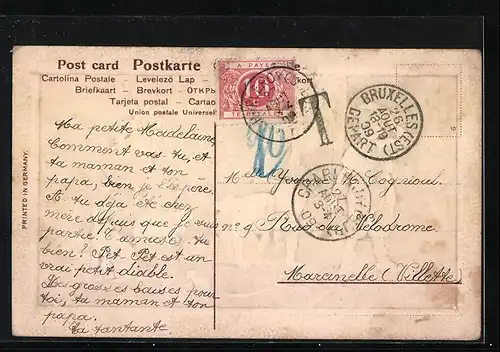 Post card Postkarte
Cartolina Postale - Levelező Lap -
Briefkaart - Brevkort - ОТКРЫ
Tarjeta postal - Cartao
Union postale Universel
kort
PRINTED IN GERMANY.
A PAYER
10
T
BRUXELLES (EST)
16
AOUT
19
09
DEPART
3-4
09
Ma petite Madelaine,
Comment vas-tu, et
ta maman et ton
papa, bien, je l'espère.
As-tu déjà été chez
mère depuis que je suis
partie? T'amuses-tu
bien? Pet Pet est un
vrai petit diable.
Des grosses baises pour
toi, ta maman et ton
papa.
Ta tantante.
Melle
nº 9 Rue du Vélodrome
Marcinelle (Villette)